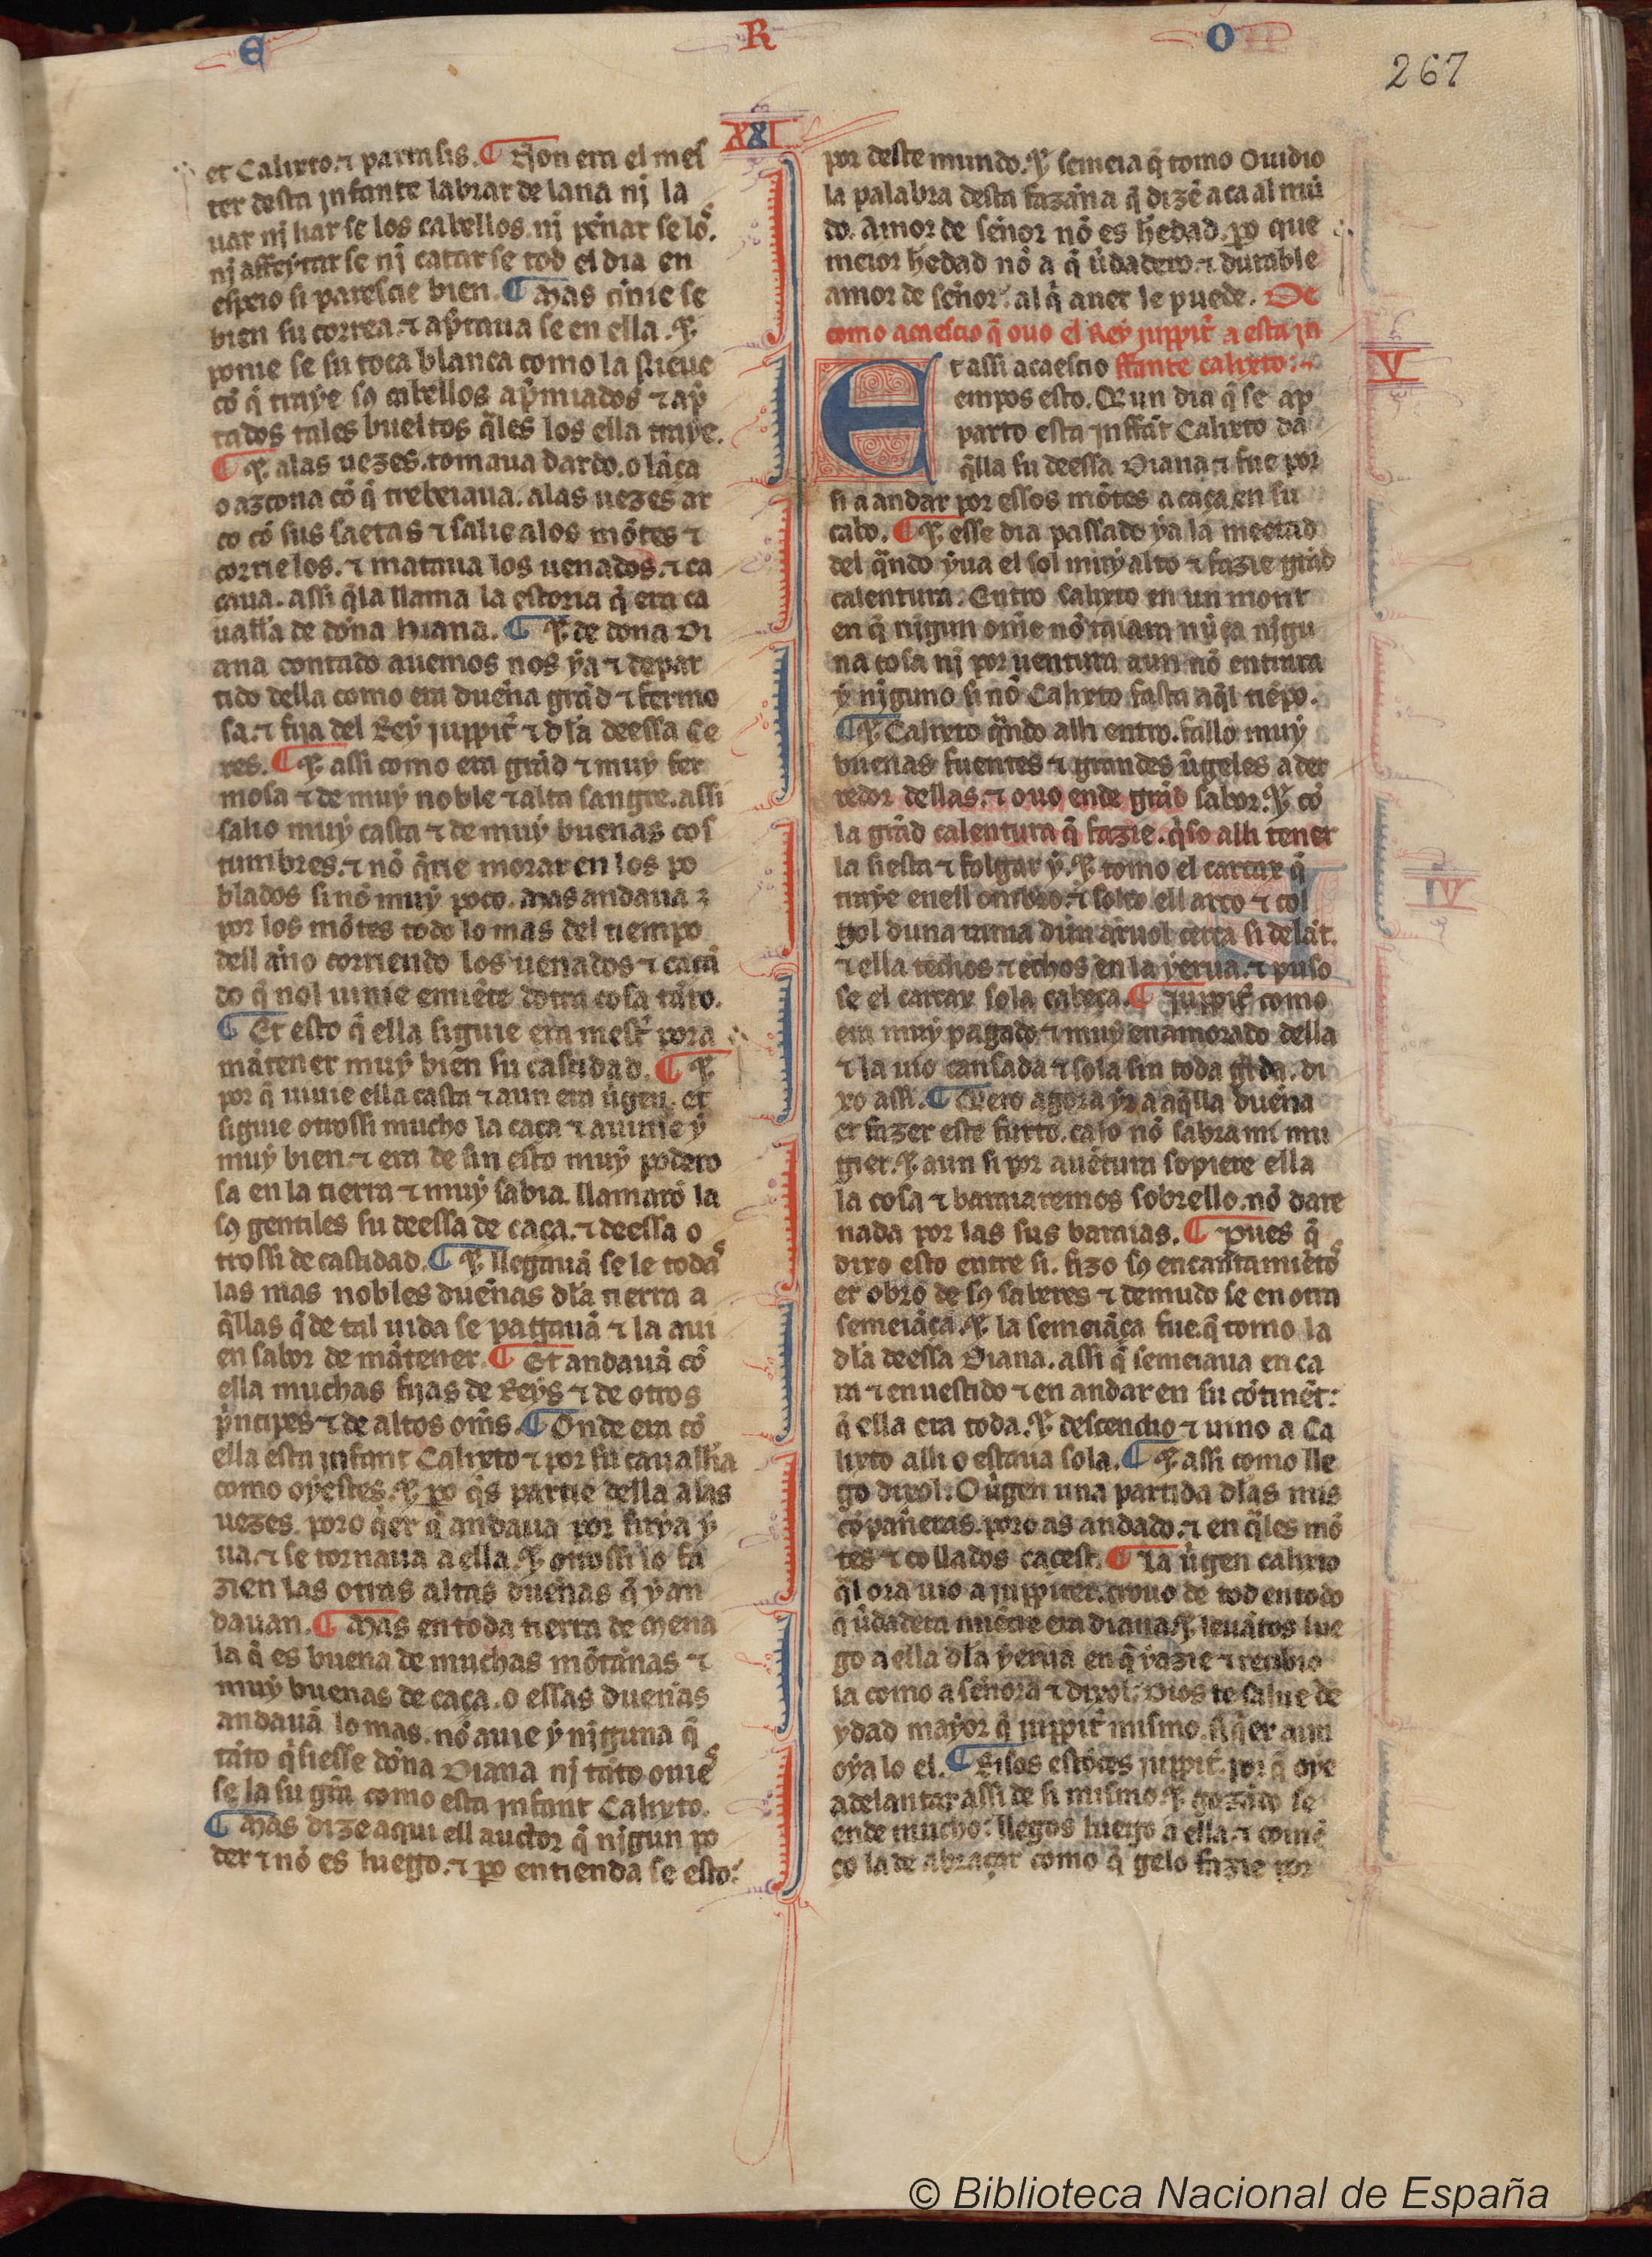 E R O
267
XXI
et Calixto. ⁊ parrasis. ¶ Non era el mes
ter desta jnfante labrar de lana nj la
uar nj liar se los cabellos. nj penar se los.
nj affeytar se nj catar se tod el dia en
espeio si parescie bien. ¶ Mas cinie se
bien su correa. ⁊ apretaua se en ella. Et
ponie se su toca blanca como la nieue
cõ q̃ traye sꝯ cabellos apmiados ⁊ ap̃
tados tales bueltos q̃les los ella traye.
¶ Et alas uezes. tomaua dardo. o lãça
o azcona cõ q̃ trebeiaua. alas uezes ar
co cõ sus saetas ⁊ salie alos mõtes ⁊
corrielos. ⁊ mataua los uenados. ⁊ ca
çaua. assi q̃ la llama la estoria q̃ era ca
uall'a de dõna Diana. ¶ Et de dona Di
ana contado auemos nos ya ⁊ depar
tido della como era duena grãd ⁊ fermo
sa. ⁊ fija del Rey juppit̃ ⁊ dl'a deessa Ce
res. ¶ Et assi como era grãd ⁊ muy fer
mosa ⁊ de muy noble ⁊ alta sangre. assi
salio muy casta ⁊ de muy buenas cos
tumbres. ⁊ nõ q̃rie morar en los po
blados si nõ muy poco. Mas andaua
por los mõtes todo lo mas del tiempo
dell anno corriendo los uenados ⁊ caçã
do q̃ nol uinie emiẽte dotra cosa tãto.
¶ Et esto q̃ ella siguie era mest̃ pora
mãtener muy bien su castidad. ¶ Et
por q̃ uiuie ella casta ⁊ aun era ũgen. et
siguie otrossi mucho la caça ⁊ auinie y
muy bien. ⁊ era de sin esto muy podero
sa en la tierra ⁊ muy sabia. llamarõ la
sꝯ gentiles su deessa de caça. ⁊ deessa o
trossi de castidad. ¶ Et llegauã se le todas
las mas nobles duenas dl'a tierra a
q̃llas q̃ de tal uida se pagauã ⁊ la aui
en sabor de mãtener. ¶ Et andauã cõ
ella muchas fijas de Reys ⁊ de otros
p̃ncipes ⁊ de altos om̃s. ¶ Onde era cõ
ella esta jnfant Calixto ⁊ por su cauall'ia
como oyestes. Et ꝑo q̃s partie della alas
uezes. poro q̃er q̃ andaua por suya y
ua. ⁊ se tornaua a ella. Et otrossi lo fa
zien las otras altas duenas q̃ y an
dauan. ¶ Mas en toda tierra de Mena
la q̃ es buena de muchas mõtannas ⁊
muy buenas de caça. o essas duenas
andauã lo mas. nõ auie y njguna q̃
tãto q̃siesse dona Diana nj tãto ouies
se la su grã como esta jnfant Calixto.
¶ Mas dize aqui ell auctor q̃ njgun po
der ⁊ nõ es luego. ⁊ ꝑo entienda se esto:
por deste mundo. Et semeia q̃ tomo Ouidio
la palabra desta fazana q̃ dizẽ aca al mũ
do. Amor de senor nõ es hedad. ꝑo que
meior hedad nõ a q̃ ũdadero. ⁊ durable
amor de senor. al q̃ auer le puede. De
como acaescio q̃ ouo el Rey juppit̃ a esta jn
ffante calixto:~
V
Et assi acaescio
empos esto. Q un dia q̃ se ap
parto esta jnffãt Calixto da
q̃lla su deessa Diana ⁊ fue por
si a andar por essos mõtes a caça en su
cabo. ¶ Et esse dia passado ya la meetad
del q̃ndo yua el sol muy alto ⁊ fazie grãd
calentura. Entro calixto en un mont
en q̃ njgun om̃e nõ taiara nũca njgu
na cosa nj por uentura aun nõ entrara
y njguno si nõ Calixto fasta aq̃l tiẽpo.
¶ Et Calixto q̃ndo alli entro. fallo muy
buenas fuentes ⁊ grandes ũgeles a der
redor dellas. ⁊ ouo ende grãd sabor. Et cõ
la grãd calentura q̃ fazie. q̃so alli tener
la siesta ⁊ folgar y. Et tomo el carcax q̃
traye enell ombro. ⁊ solto ell arco ⁊ col
gol duna rama dun aruol cerca si delãt.
⁊ ella techos ⁊ echos en la yerua. ⁊ puso
se el carcax sola cabeça. ¶ Juppit̃ como
era muy pagado ⁊ muy enamorado della
⁊ la uio cansada ⁊ sola sin toda gͣrda. di
xo assi. ¶ Quiero agora yr a aq̃lla duena
et fazer este furto. caso nõ sabra mi mu
gier. Et aun si por auẽtura sopiere ella
la cosa ⁊ barraiaremos sobrello. nõ dare
nada por las sus baraias. ¶ Pues q̃
dixo esto entre si. fizo sꝯ encantamiẽtos
et obro de sꝯ saberes ⁊ demudo se en otra
semeiãça. Et la semeiãça fue. q̃ tomo la
dl'a deessa Diana. assi q̃ semeiaua en ca
ra ⁊ en uestido ⁊ en andar en su cõtinẽt:
q̃ ella era toda. Et descendio ⁊ uino a Ca
lixto alli o estaua sola. ¶ Et assi como lle
go dixol: O ũgen una partida dl'as mis
cõpaneras. poro as andado. ⁊ en q̃les mõ
tes ⁊ collados caçest. ¶ La ũgen calixto
q̃l ora uio a juppiter. crouo de tod en todo
q̃ ũdadera miẽtre era diana. Et leuãtos lue
go a ella dl'a yerua en q̃ yazie ⁊ recibio
la como a senora ⁊ dixol: Dios te salue de
ydad mayor q̃ juppit̃ mismo. si q̃er aun
oya lo el. ¶ Risos estõces juppit̃. por q̃ oye
adelantar assi de si mismo. Et gozãdo se
ende mucho: llegos luego a ella. ⁊ comẽ
ço la de abraçar como q̃ gelo fazie por
IV
© Biblioteca Nacional de España